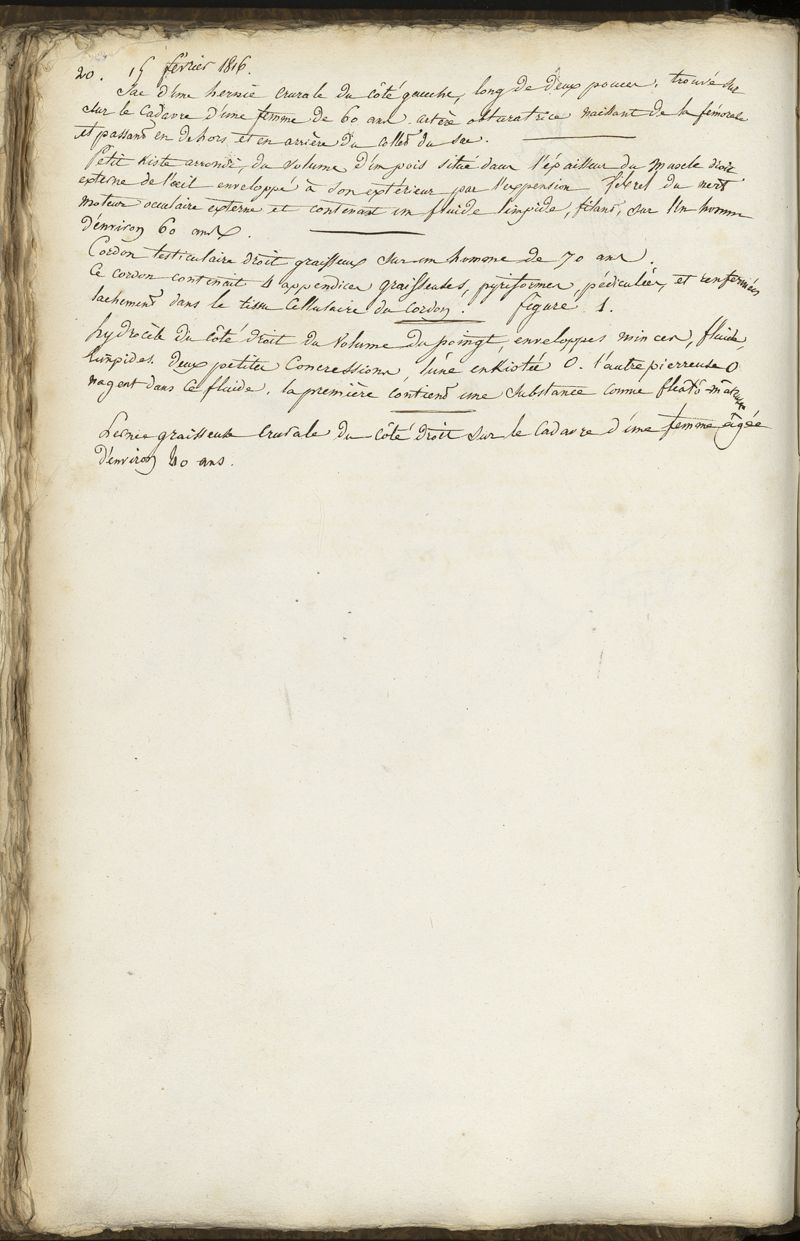 20. 15 février 1816.
Sac d'une hernie crurale du côté gauche, long de deux pouces. trouvé
sur le cadavre d'une femme de 60 ans. artère obturatrice naissant de la fémorale
et passant en dehors et en arrière du collet du sac.
Petit kiste arrondi, du volume d'un pois situé dans l'épaisseur du muscle droit
externe de l'œil enveloppé à son extérieur par l'expension du nerf
moteur oculaire externe et contenant un fluide limpide, filant, sur un homme
d'environ 60 ans.
Cordon testiculaire droit graisseux sur un homme de 70 ans.
Ce cordon contenait 4 appendices graisseuses, pyriformes, pédiculées, et renfermées
lachement dans le tissu cellulaire du cordon. figure 1.
hydrocèle du côté droit du volume du poingt, enveloppes minces, fluide
limpide. deux petites concressions, l'une enkistée O. l'autre pierreuse O
nagent dans ce fluide. la première contient une substance comme
hernie graisseuse crurale du côté droit sur le cadavre d'une femme âgée
d'environ 40 ans.